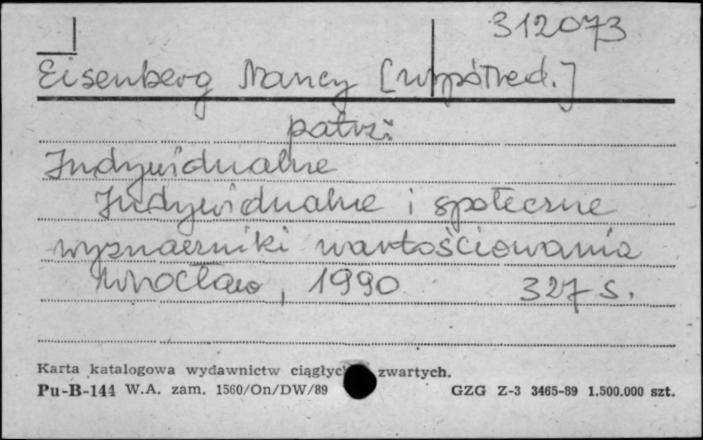 312073
Eisenberg Nancy [współred.]
patrz:
Indywidualne
Indywidualne i społeczne
wyznaczniki wartościowania
Wrocław, 1990 327 s.
Karta katalogowa wydawnictw ciągłych zwartych.
Pu-B-144 W.A. zam. 1560/On/DW/89 GZG Z-3 3465-89 1.500.000 szt.